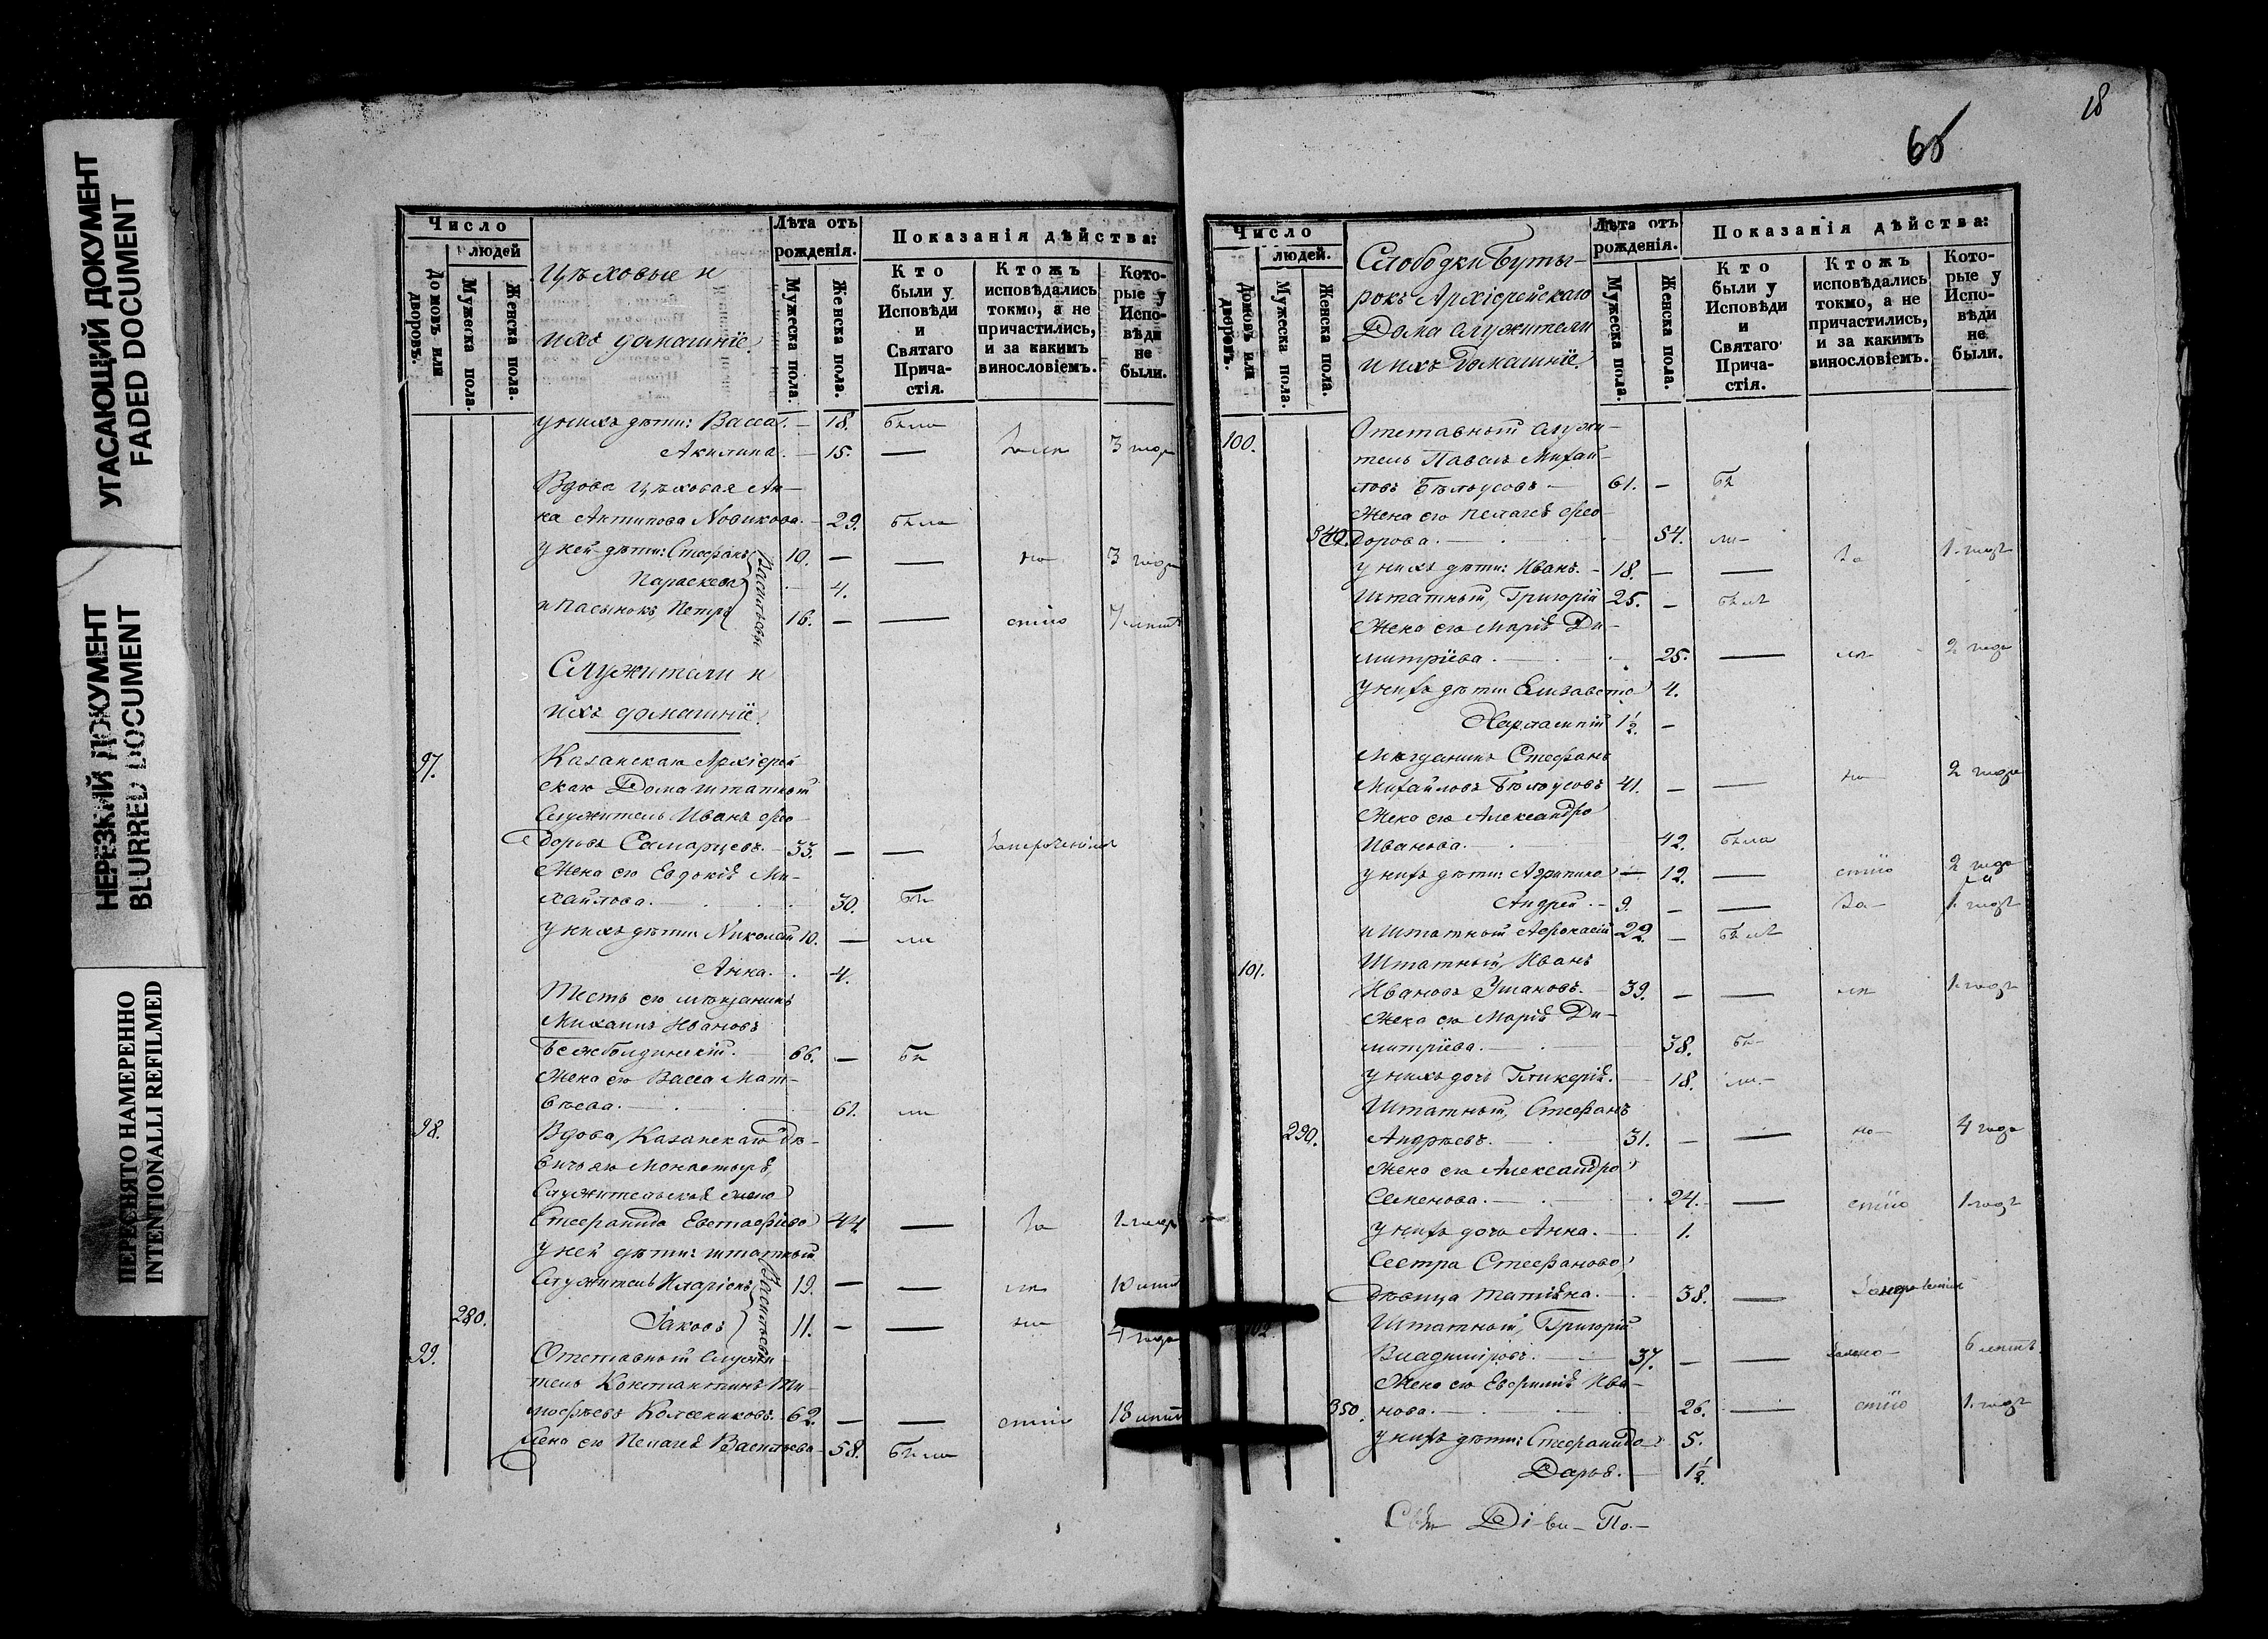 УГАСАЮЩИЙ ДОКУМЕНТ
FADED DOCUMENT
НЕРЕЗКИЙ ДОКУМЕНТ
BLURRED DOCUMENT
ПЕРЕСНЯТО НАМЕРЕННО
INTENTIONALLI REFILMED
Число
людей
Домовъ или дворовъ.
Мужеска пола.
Женска пола.
Цѣховые и
ихъ домашніе.
Лѣта отъ рожденія.
Мужеска пола.
Женска пола.
Показанія дѣйства:
Кто были у Исповѣди и Святаго Причастія.
Ктожъ исповѣдались токмо, а не причастились, и за какимъ винословіемъ.
Которые у Исповѣди не были.
у нихъ дѣти: Васса. — 18. была
Акилина. — 15. — 3 года
Вдова цѣховая Ан-
на Антипова Новикова. — 29. была
у ней дѣти: Стефанъ 10. — — 3 года
Параскева — 4.
и пасынокъ Петръ 16. — —
Васильевы
Служители и
ихъ домашніе.
97. Казанскаго Архіерей
скаго Дома штатный
служитель Иванъ Фео-
доровъ Самарцевъ. — 33. — —
Жена его Евдокія Ми-
хайлова. — 30. бы
у нихъ дѣти: Николай 10. — ли
Анна. — 4.
Тесть его мѣщанинъ
Михаилъ Ивановъ
66. — бы
Жена его Васса Мат-
вѣева. — 61. ли
98. Вдова Казанскаго Дѣ-
вичьяго Монастыря
Служительская жена
Стефанида Евстафіева 44 — за
у ней дѣти: штатный
служитель Иларіонъ 19. — —
280. Іаковъ 11. — — 4 года
Васильевы
99. Отставный служи
тель Константинъ Ти-
мофѣевъ Колесниковъ. 62. — — 18 лѣтъ
Жена его Пелагея Васильева — 58. была
18
65
Число
людей.
Домовъ или дворовъ.
Мужеска пола.
Женска пола.
Слободки Буты-
рокъ Архіерейскаго
Дома служители
и ихъ домашніе.
Лѣта отъ рожденія.
Мужеска пола.
Женска пола.
Показанія дѣйства:
Кто были у Исповѣди и Святаго Причастія.
Ктожъ исповѣдались токмо, а не причастились, и за какимъ винословіемъ.
Которые у Исповѣди не были.
100. Отставный служи-
тель Павелъ Михай-
ловъ Бѣлоусовъ — 61. — бы
Жена его Пелагея Фео-
дорова. — 54. ли-
у нихъ дѣти: Иванъ. — 18. — — за 1. годъ
Штатный, Григорій 25. — былъ
Жена его Марія Ди-
митріева. — 25. — 2 года
у нихъ дѣти Елизавета 4.
Харлампій 1½. —
Мѣщанинъ Стефанъ
Михайловъ Бѣлоусовъ 41. — — 2 года
Жена его Александра
Иванова. — 42. была
у нихъ дѣти: Агрипина — 12. — 2 года
Андрей — 9. — — за- 1. годъ
и штатный Афонасій 22. — былъ
101. Штатный, Иванъ
Ивановъ Ушаковъ. — 39. — — 1. годъ
Жена его Марія Ди-
митріева. — 38. бы-
у нихъ дочь Гликерія. — 18. ли.-
Штатный, Стефанъ
290. Андрѣевъ. — 31. — — 4 года
Жена его Александра
Семенова. — 24. — 1 годъ
у нихъ дочь Анна. — 1.
Сестра Стефанова
дѣвица Татіяна. — 38. —
Штатный, Григорій
Владиміровъ. — 37. — — 6 лѣтъ.
Жена его Евфимія Ива-
350. нова. — 26. — 1. годъ
у нихъ дѣти: Стефанида 5.
Дарья. — 1½.